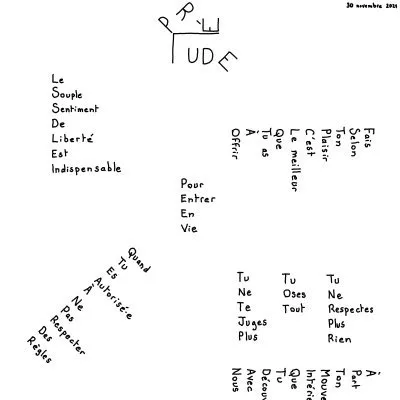 30 novembre 2021
PRÉ
LUDE
Le
Souple
Sentiment
De
Liberté
Est
Indispensable
Fais
Selon
Ton
Plaisir
C'est
Le meilleur
Que
Tu as
À
Offrir
Pour
Entrer
En
Vie
Quand
Tu
Es
Autorisé·e
À
Ne
Pas
Respecter
Des
Règles
Tu
Ne
Te
Juges
Plus
Tu
Oses
Tout
Tu
Ne
Respectes
Plus
Rien
À
Part
Ton
Mouve
Intérie
Que
Tu
Décou
Avec
Nous